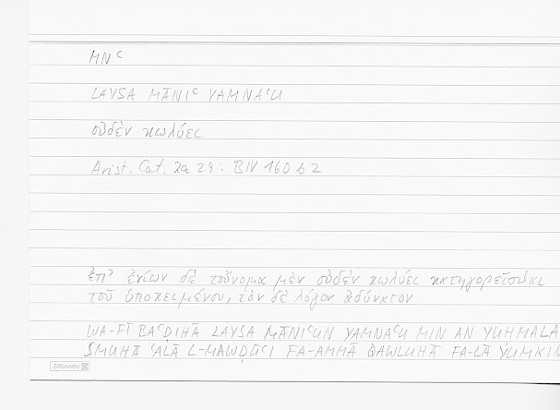 MNᶜ
LAYSA MĀNIᶜ YAMNAᶜU
οὐδὲν κωλύει
Arist. Cat. 2a 29 : BIV 160 b 2
ἐπ' ἐνίων δὲ τοὔνομα μὲν οὐδὲν κωλύει κατηγορεῖσθαι
τοῦ ὑποκειμένου, τὸν δὲ λόγον ἀδύνατον
WA-FĪ BAᶜḌIHĀ LAYSA MĀNIᶜUN YAMNAᶜU MIN AN YUḤMALA
SMUHĀ ᶜALĀ L-MAWḌŪᶜI FA-AMMĀ QAWLUHĀ FA-LĀ YUMKIN